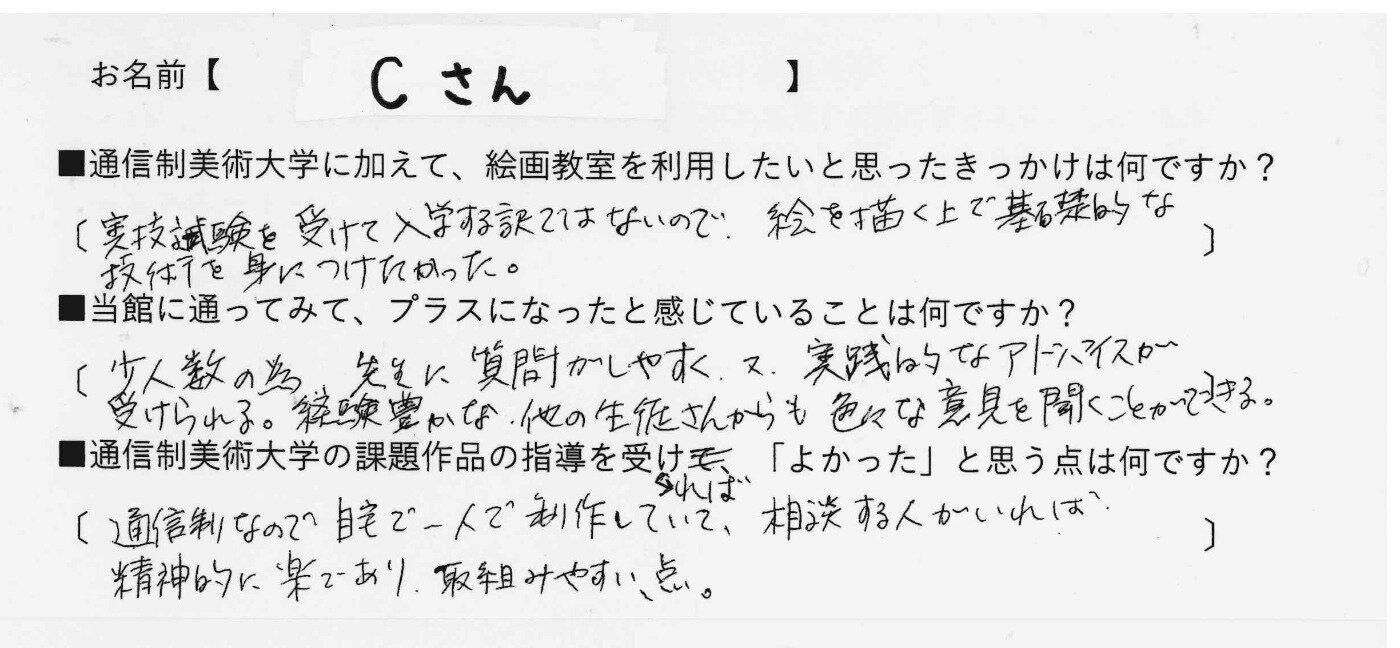 お名前【 Cさん 】
■通信制美術大学に加えて、絵画教室を利用したいと思ったきっかけは何ですか？
〔 実技試験を受けて入学する訳ではないので、絵を描く上で基礎的な
技術を身につけたかった。 〕
■当館に通ってみて、プラスになったと感じていることは何ですか？
〔 少人数の為、先生に質問がしやすく、又、実践的なアドバイスが
受けられる。経験豊かな、他の生徒さんからも色々な意見を聞くことができる。 〕
■通信制美術大学の課題作品の指導を受けて、「よかった」と思う点は何ですか？
れば
〔 通信制なので自宅で一人で制作していて、相談する人がいれば、
精神的に楽であり、取組みやすい、点。 〕